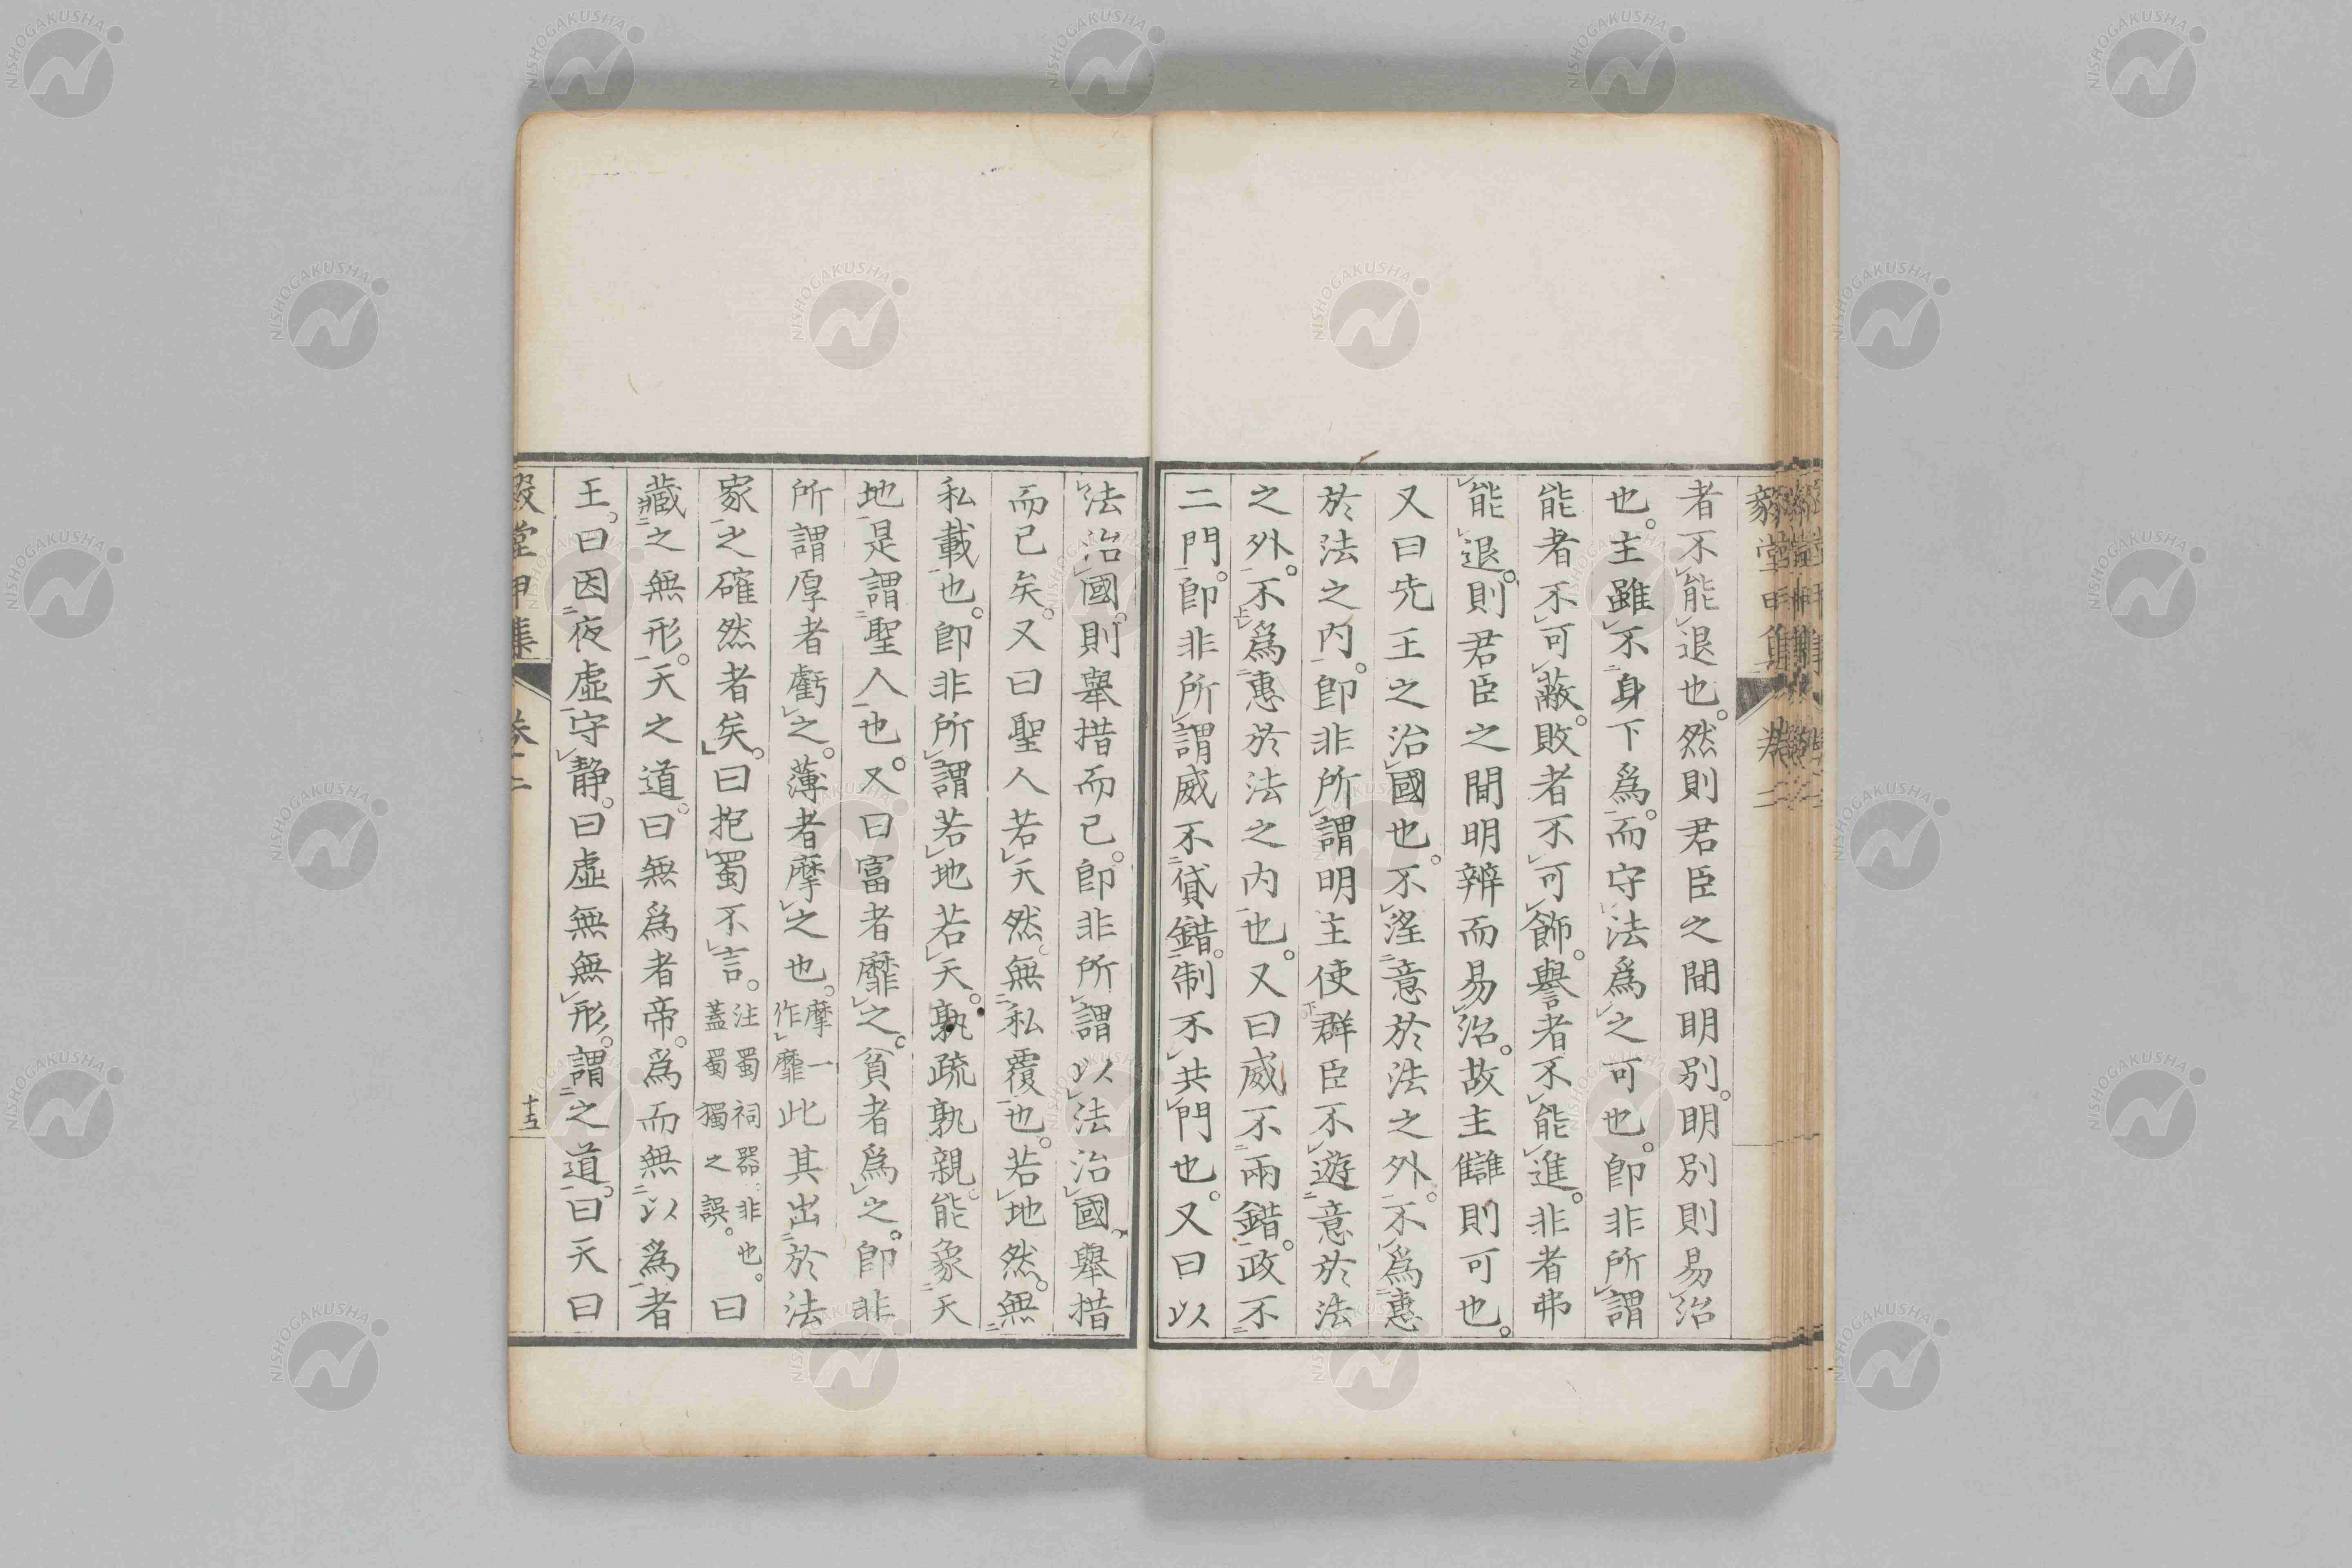 毅堂甲集 卷二
者不能退也。然則君臣之間明別。明別則易治
也。主雖不身下爲。而守法爲之可也。卽非所謂
能者不可蔽。敗者不可飾。譽者不能進。非者弗
能退。則君臣之間明辨而易治。故主讎則可也。
又曰先王之治國也。不淫意於法之外。不爲惠
於法之內。卽非所謂明主使群臣不遊意於法
之外。不爲惠於法之內也。又曰威不兩錯。政不
二門。卽非所謂威不貸錯。制不共門也。又曰以
法治國。則舉措而已。卽非所謂以法治國。舉措
而已矣。又曰聖人若天然。無私覆也。若地然。無
私載也。卽非所謂若地若天。孰疏孰親。能象天
地。是謂聖人也。又曰富者靡之。貧者爲之。卽非
所謂厚者虧之。薄者摩之也。摩一作靡此其出於法
家之確然者矣。曰抱蜀不言。注蜀祠器。非也。蓋蜀獨之誤。曰
藏之無形。天之道。曰無爲者帝。爲而無以爲者
王。曰因夜虛守靜。曰虛無無形。謂之道。曰天曰
毅堂甲集 卷二 十五
NISHOGAKUSHA